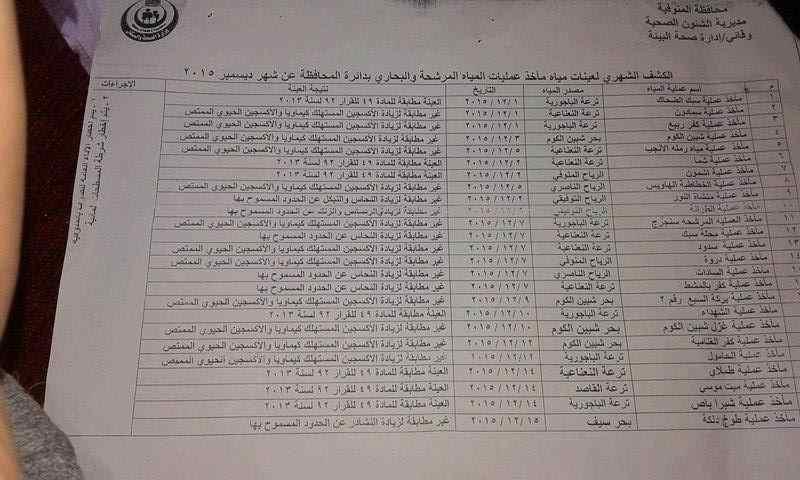 محافظة المنوفية
مديرية الشئون الصحية
وقائي/إدارة صحة البيئة
الكشف الشهري لعينات مياه مأخذ عمليات المياه المرشحة والبحاري بدائرة المحافظة عن شهر ديسمبر ٢٠١٥
م اسم عملية المياه مصدر المياه التاريخ نتيجة العينة الاجراءات
١ مأخذ عملية سبك الضحاك ترعة الباجورية ٢٠١٥/١٢/١ العينة مطابقة للمادة ٤٩ للقرار ٩٢ لسنة ٢٠١٣
٢ مأخذ عملية سمادون ترعة النعناعية ٢٠١٥/١٢/١ غير مطابقة لزيادة الأكسجين المستهلك كيماويا والأكسجين الحيوي الممتص
٣ مأخذ عملية كفر ربيع ترعة الباجورية ٢٠١٥/١٢/١ غير مطابقة لزيادة الأكسجين المستهلك كيماويا والأكسجين الحيوي الممتص
٤ مأخذ عملية شبين الكوم بحر شبين الكوم ٢٠١٥/١٢/٣ غير مطابقة لزيادة الأكسجين المستهلك كيماويا والأكسجين الحيوي الممتص
٥ مأخذ عملية مياه رملة الأنجب ترعة النعناعية ٢٠١٥/١٢/٥ غير مطابقة لزيادة الأكسجين المستهلك كيماويا والأكسجين الحيوي الممتص
مأخذ عملية شما ترعة النعناعية ٢٠١٥/١٢/٢ العينة مطابقة للمادة ٤٩ للقرار ٩٢ لسنة ٢٠١٣
مأخذ عملية أشمون الرياح المنوفي ٢٠١٥/١٢/٢ العينة مطابقة للمادة ٤٩ للقرار ٩٢ لسنة ٢٠١٣
مأخذ عملية الخطاطبة الهاويس الرياح الناصري ٢٠١٥/١٢/٥ غير مطابقة لزيادة الأكسجين المستهلك كيماويا والأكسجين الحيوي الممتص
٩ مأخذ عملية منشاة النور الرياح التوفيقي ٢٠١٥/١٢/٢ غير مطابقة لزيادة النحاس والنيكل عن الحدود المسموح بها
مأخذ عملية غير مطابقة لزيادة الرصاص والزنك عن الحدود المسموح بها
١١ مأخذ العملية المرشحة سنجرج ترعة الباجورية ٢٠١٥/١٢/٧ غير مطابقة لزيادة الأكسجين المستهلك كيماويا والأكسجين الحيوي الممتص
١٢ مأخذ عملية محلة سبك ترعة النعناعية ٢٠١٥/١٢/٧ غير مطابقة لزيادة النحاس عن الحدود المسموح بها
١٣ مأخذ عملية سدود ترعة النعناعية ٢٠١٥/١٢/٧ غير مطابقة لزيادة الأكسجين المستهلك كيماويا والأكسجين الحيوي الممتص
١٤ مأخذ عملية دروة الرياح المنوفي ٢٠١٥/١٢/٧ غير مطابقة لزيادة الأكسجين المستهلك كيماويا والأكسجين الحيوي الممتص
مأخذ عملية السادات الرياح الناصري ٢٠١٥/١٢/٧ غير مطابقة لزيادة النحاس عن الحدود المسموح بها
مأخذ عملية كفر بالمشط ترعة النعناعية ٢٠١٥/١٢/٧ غير مطابقة لزيادة النحاس عن الحدود المسموح بها
مأخذ عملية بركة السبع رقم ٢ بحر شبين الكوم ٢٠١٥/١٢/٩ غير مطابقة لزيادة الأكسجين المستهلك كيماويا والأكسجين الحيوي الممتص
مأخذ عملية الشهداء ترعة الباجورية ٢٠١٥/١٢/١٠ العينة مطابقة للمادة ٤٩ للقرار ٩٢ لسنة ٢٠١٣
مأخذ عملية غزل شبين الكوم بحر شبين الكوم ٢٠١٥/١٢/١٠ غير مطابقة لزيادة الأكسجين المستهلك كيماويا والأكسجين الحيوي الممتص
مأخذ عملية كفر الغنامية بحر شبين الكوم ٢٠١٥/١٢/١٢ غير مطابقة لزيادة الأكسجين المستهلك كيماويا والأكسجين الحيوي الممتص
مأخذ عملية الحامول ترعة الباجورية ٢٠١٥/١٢/١٢ غير مطابقة لزيادة الأكسجين المستهلك كيماويا والأكسجين الحيوي الممتص
مأخذ عملية طملاي ترعة النعناعية ٢٠١٥/١٢/١٤ العينة مطابقة للمادة ٤٩ للقرار ٩٢ لسنة ٢٠١٣
مأخذ عملية ميت موسي ترعة القاصد ٢٠١٥/١٢/١٤ العينة مطابقة للمادة ٤٩ للقرار ٩٢ لسنة ٢٠١٣
مأخذ عملية شبرا باص ترعة الباجورية ٢٠١٥/١٢/١٤ العينة مطابقة للمادة ٤٩ للقرار ٩٢ لسنة ٢٠١٣
مأخذ عملية طوخ دلكة بحر سيف ٢٠١٥/١٢/١٥ غير مطابقة لزيادة النشادر عن الحدود المسموح بها